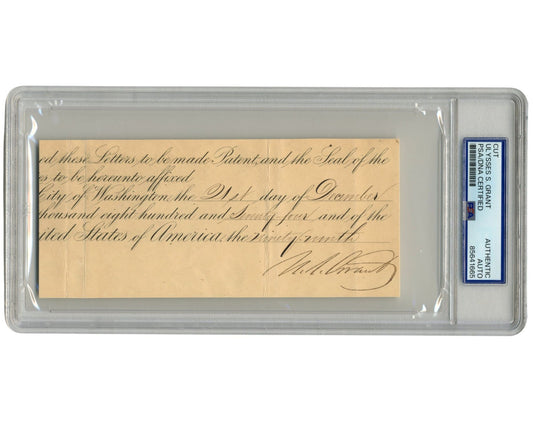 ed these Letters to be made Patent, and the Seal of the
es to be hereunto affixed
City of Washington, the 21st day of December
thousand eight hundred and Seventy four and of the
ited States of America, the ninety ninth
U.S. Grant
CUT
ULYSSES S. GRANT
PSA/DNA CERTIFIED
PSA
AUTHENTIC
AUTO
85641665